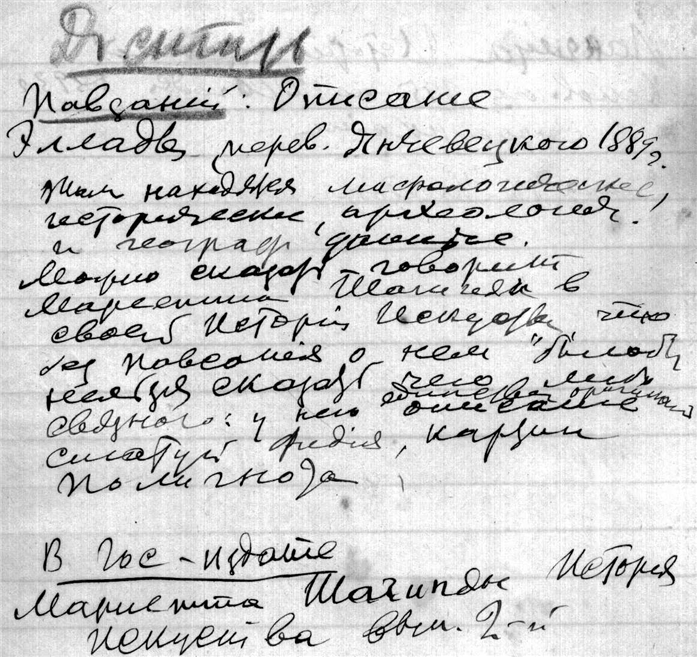 Достать
Павзаний. Описание
Эллады перев. Янчевецкого 1889 г.
там находятся мифологические,
исторически, археология!
и географ данные.
Можно сказать говорит
Мариэтта Шагинян в
своей Истории Искусства, что
без Павзания о нем "было бы
нельзя сказать чего либо
связного: у него единств описание
статуй Фидия, картин
Полигнота
В Гос-издате
Мариэтта Шагинян История
Искуства вып. 2-й